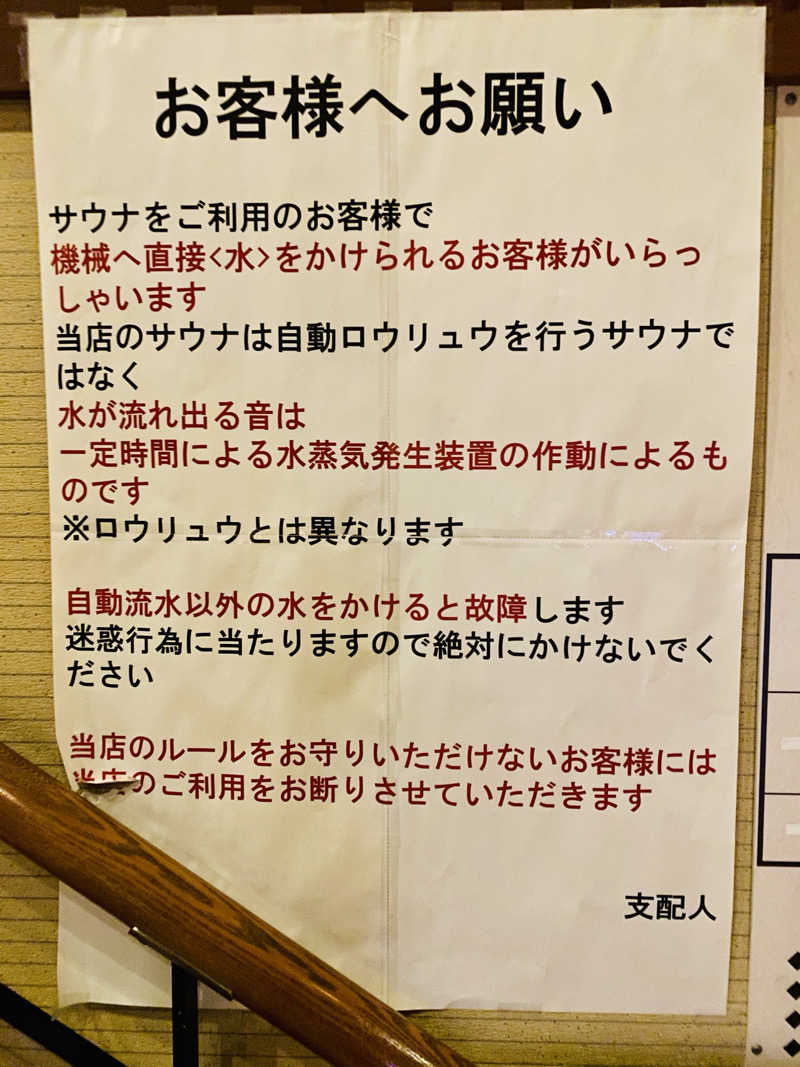 お客様へお願い
サウナをご利用のお客様で
機械へ直接<水>をかけられるお客様がいらっ
しゃいます
当店のサウナは自動ロウリュウを行うサウナで
はなく
水が流れ出る音は
一定時間による水蒸気発生装置の作動によるも
のです
※ロウリュウとは異なります
自動流水以外の水をかけると故障します
迷惑行為に当たりますので絶対にかけないでく
ださい
当店のルールをお守りいただけないお客様には
当店のご利用をお断りさせていただきます
支配人